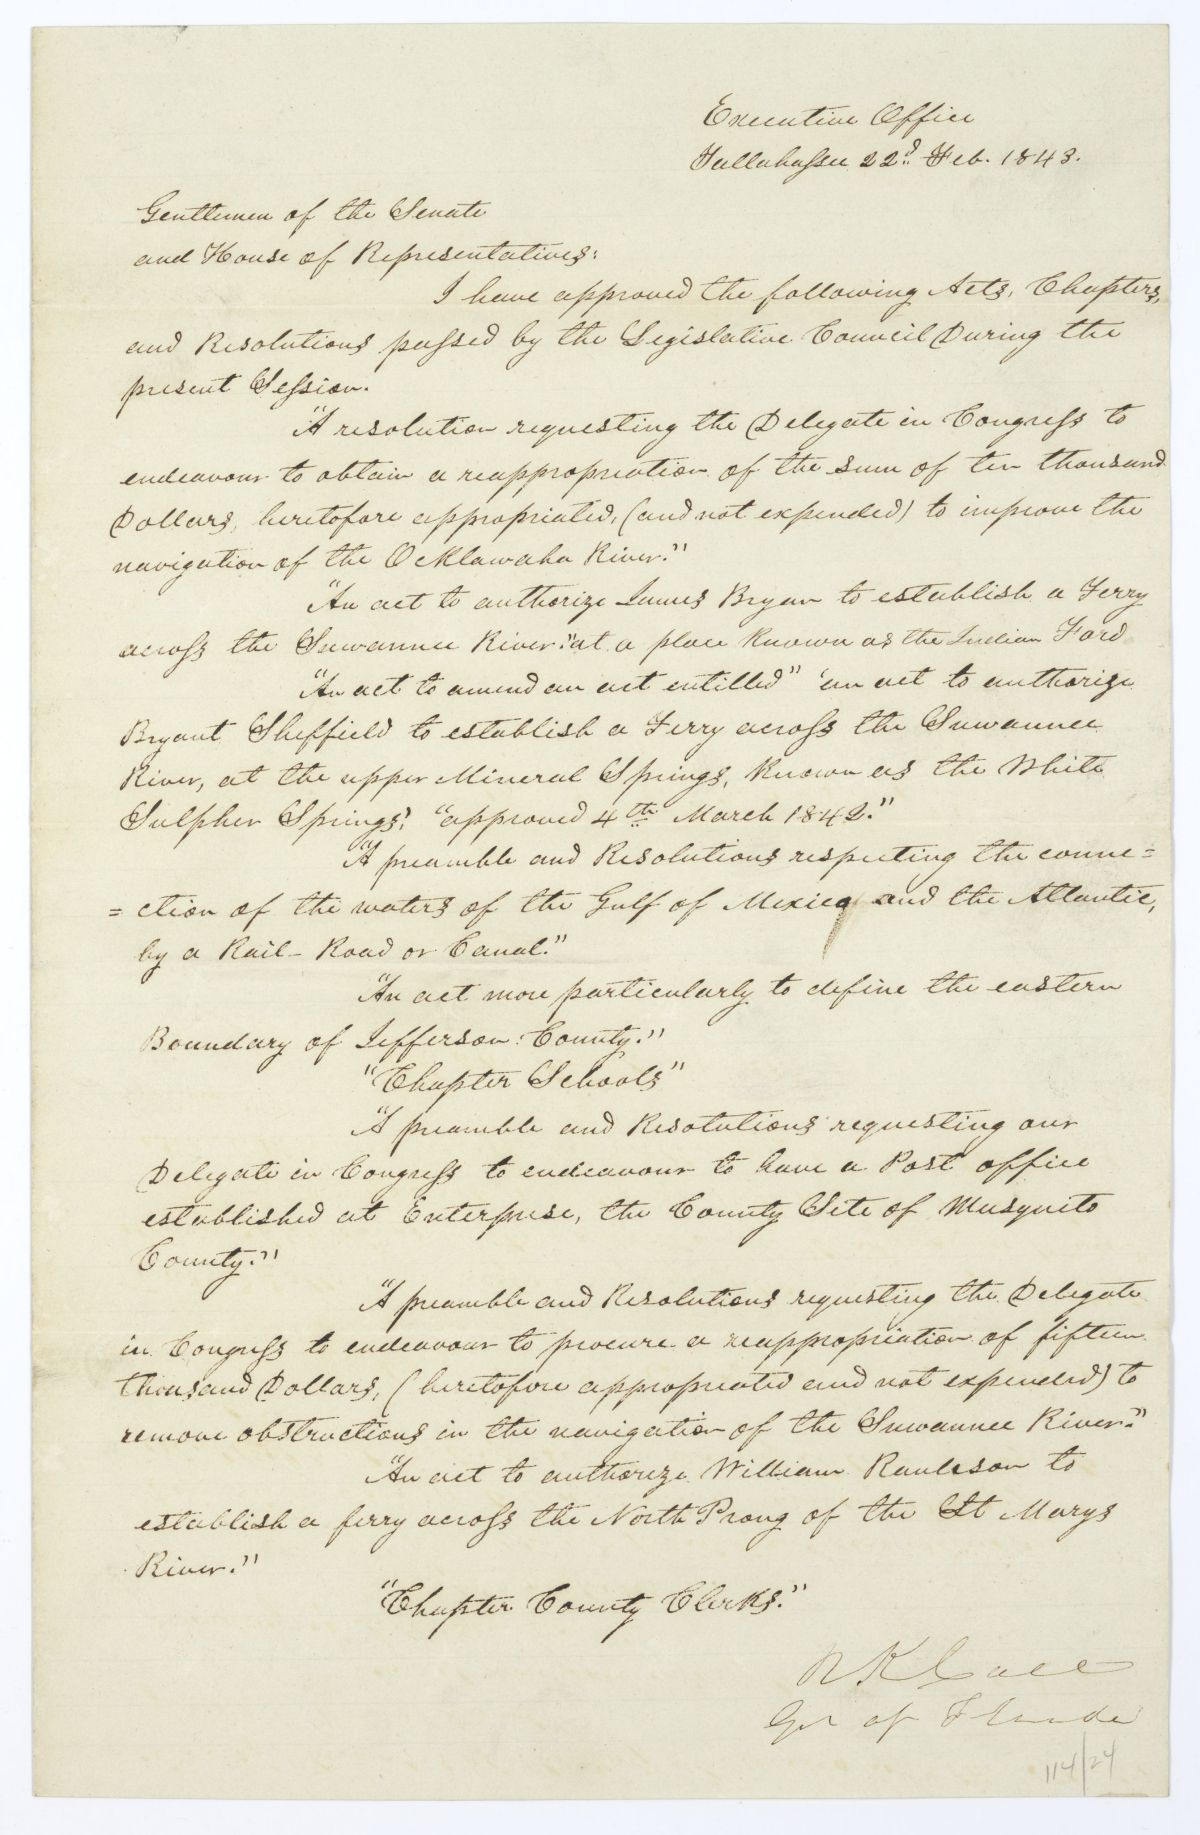 Executive Office
Tallahassee 22d Feb. 1843.
Gentlemen of the Senate
and House of Representatives:
I have approved the following Acts, Chapters,
and Resolutions passed by the Legislative Council During the
present Session.
"A resolution requesting the Delegate in Congress to
endeavour to obtain a reappropriation of the sum of ten thousand
Dollars, heretofore appropriated, (and not expended) to improve the
navigation of the Ocklawaha River."
"An act to authorize James Bryan to establish a Ferry
across the Suwannee River" at a place known as the Indian Ford
"An act to amend an act entitled" 'an act to authorize
Bryant Sheffield to establish a Ferry across the Suwannee
River, at the upper Mineral Springs, known as the White
Sulpher Springs', "approved 4th March 1842."
"A preamble and Resolutions respecting the conne=
=ction of the waters of the Gulf of Mexico and the Atlantic,
by a Rail-Road or Canal."
"An act more particularly to define the eastern
Boundary of Jefferson County."
"Chapter Schools"
"A preamble and Resolutions requesting our
Delegate in Congress to endeavour to have a Post office
established at Enterprise, the County Site of Musquito
County."
"A preamble and Resolutions requesting the Delegate
in Congress to endeavour to procure a reappropriation of fifteen
thousand Dollars, (heretofore appropriated and not expended) to
remove obstructions in the navigation of the Suwannee River."
"An act to authorize William Raulerson to
establish a ferry across the North Prong of the St Marys
River."
"Chapter County Clerks."
R K Call
Gov of Florida
114/24